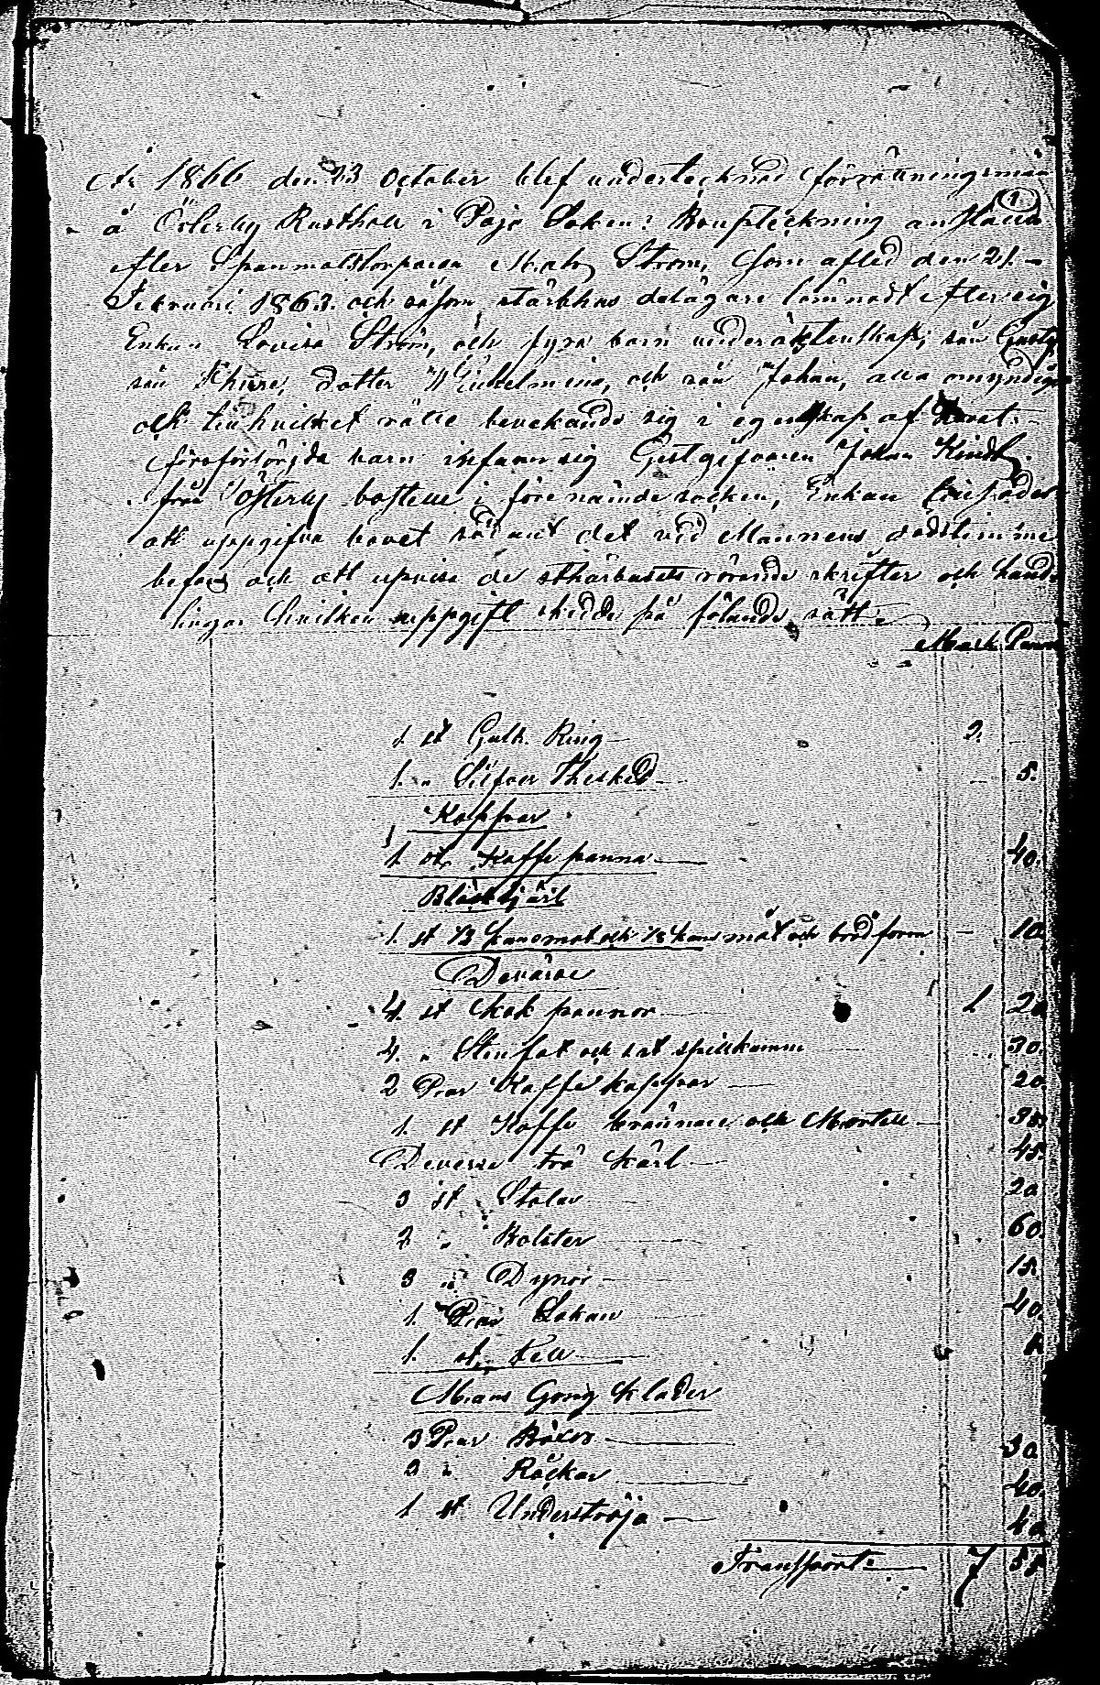 År 1866 den 23 October blef undertecknad förrättningsmän
å Österby Rusthåll i Pojo Soken: Bouptekning anstäld
efter Spanmålstorparen Math Ström, som afled den 21
Februari 1863. och såsom stärbhus delägare lämnadt efter sig
Enkan Lovisa Ström, och fyra barn under äktenskap; sön Gustaf
sön dotter Wilhelmina, och son Johan, alla omyndiga
och till hvilket rätte bevakande sig i egenskap af
barn infann sig Gestgifvaren Johan
från Österby boställe i förenämde socken, Enkan
att uppgifva bovet sådant det vid Mannens dödstimme
befans och att upvisa de stärbusets rörande skrifter och hand-
lingar hvilken uppgift skedde på följande sätt:
Mark Penni
1. st Guld. Ring 2.
1. " Silfver Thesked 5.
Koppar
1 st Kaffe panna 40.
Bläckkjärl
1. st 1/2 kanomåt och 1/2 kans måt och bröd form 10
Deverse
4. st Kok pannor 1 20
4. " Stenfat och 1 st spillkumm 30.
2 Par Kaffe koppar 20.
1. st Kaffe brännare och Mortell
Deverse trä kärl 45.
3 st Stolar 20
2 " Bolster 60.
3 " Dynor 15.
1. Par Lakan 40.
1. st. Fell
Mans Gong Kläder
3 Par Böxor 30
2 " Råckar 40.
1 st Undertröja 40
Transport 7 55